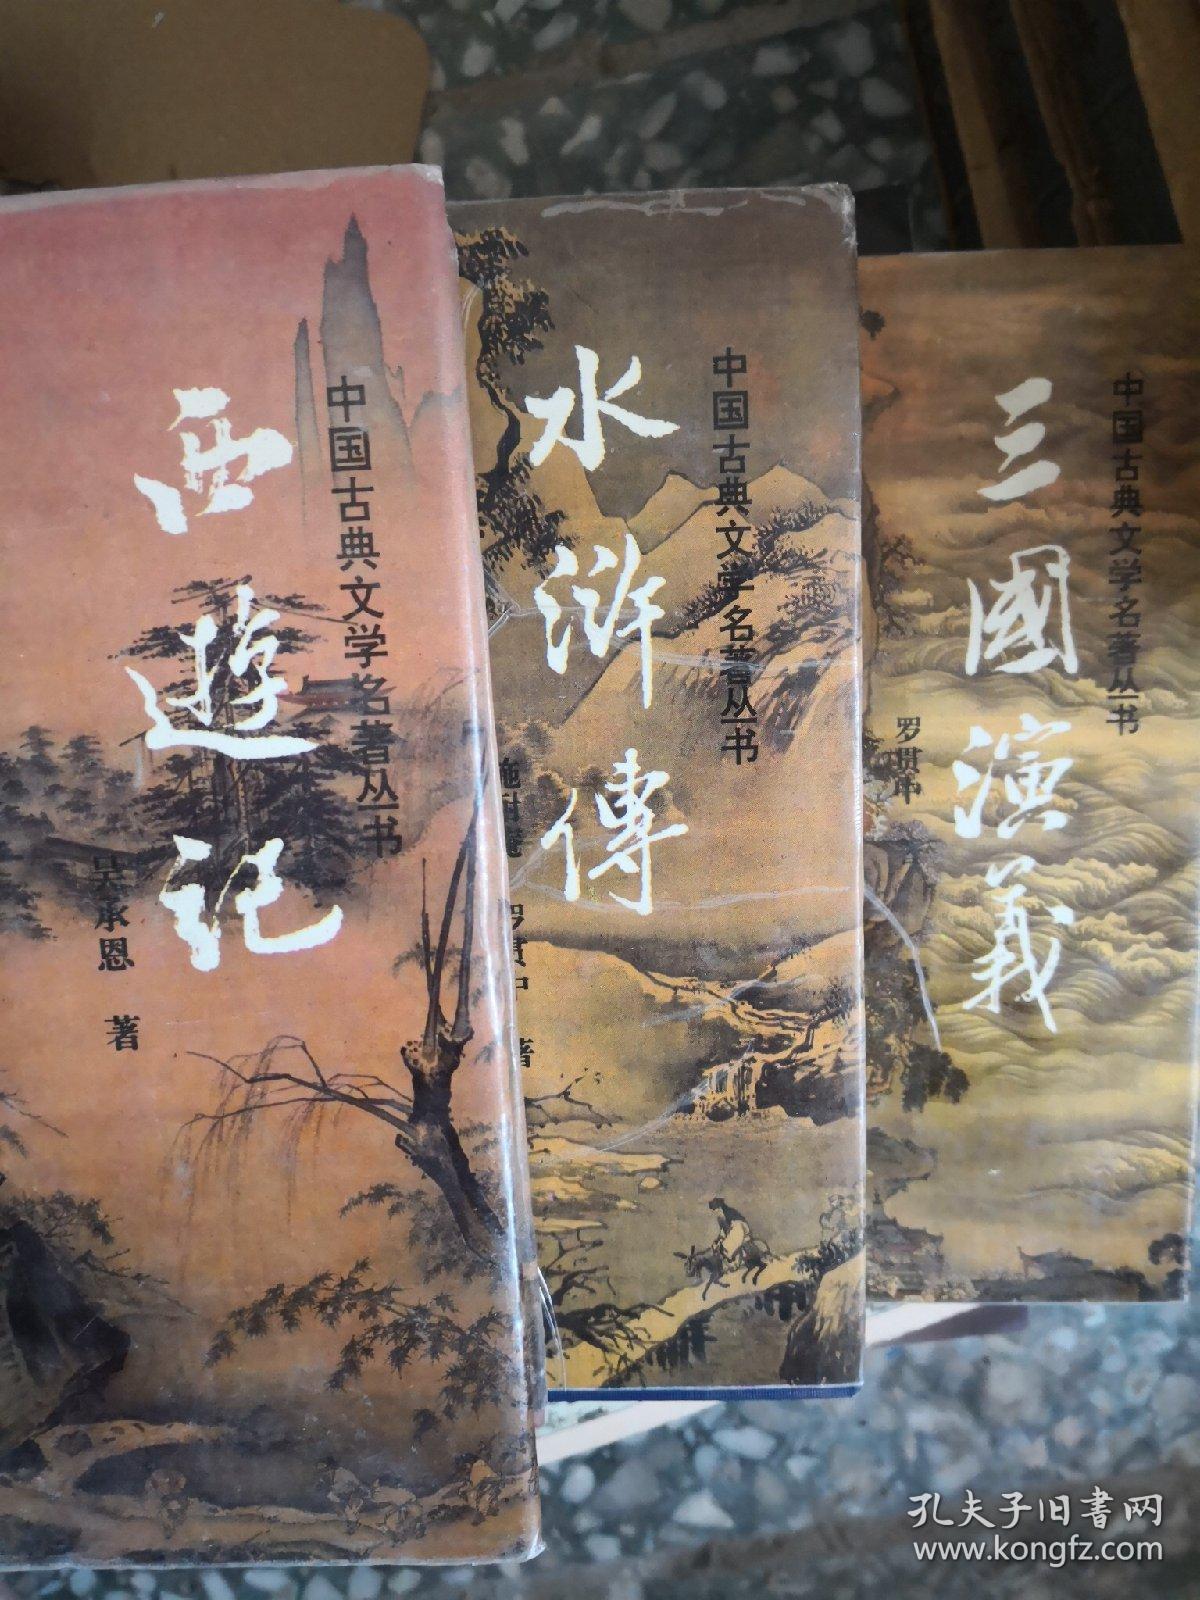 西遊记
中国古典文学名著丛书
吴承恩 著
水浒傳
中国古典文学名著丛书
施耐庵 罗贯中 著
三國演義
中国古典文学名著丛书
罗贯中
孔夫子旧書网
www.kongfz.com